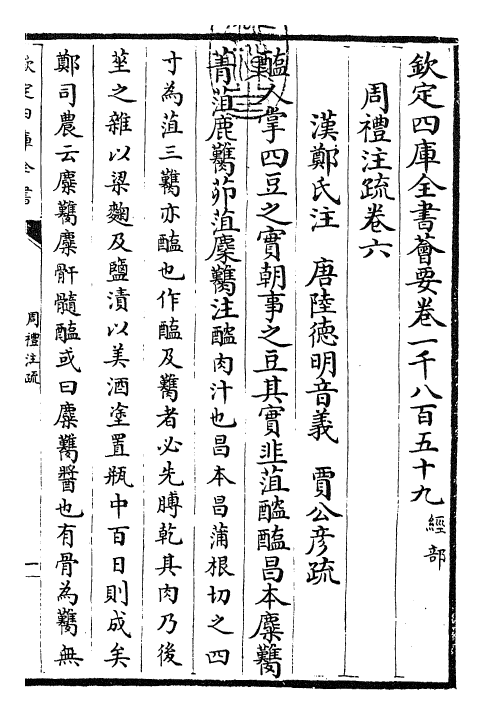 欽定四庫全書薈要卷一千八百五十九 經部
周禮注疏卷六
漢鄭氏注 唐陸德明音義 賈公彦疏
醢人掌四豆之實朝事之豆其實韭菹醓醢昌本麋臡
菁菹鹿臡茆菹麋臡注醓肉汁也昌本昌蒲根切之四
寸為菹三臡亦醢也作醢及臡者必先膊乾其肉乃後
莝之雜以粱麴及鹽漬以美酒塗置瓶中百日則成矣
鄭司農云麋臡麋骭髓醢或曰麋臡醬也有骨為臡無
欽定四庫全書
周禮注疏
一